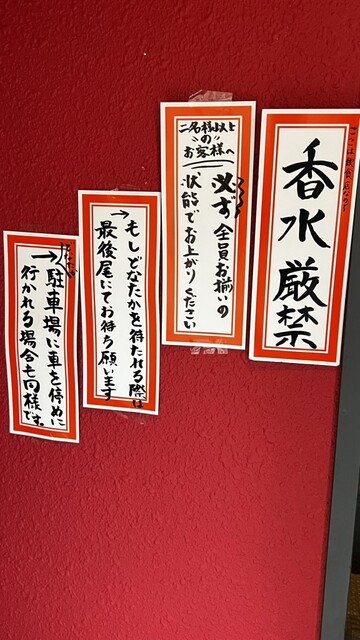 ここは飲食店なので
香水厳禁
二名様以上
の
お客様へ
必ず全員お揃いの
状態でお上がりください
→もしどなたかを待たれる際は
最後尾にてお待ち願います
→駐車場に車を停めに
行かれる場合も同様です。